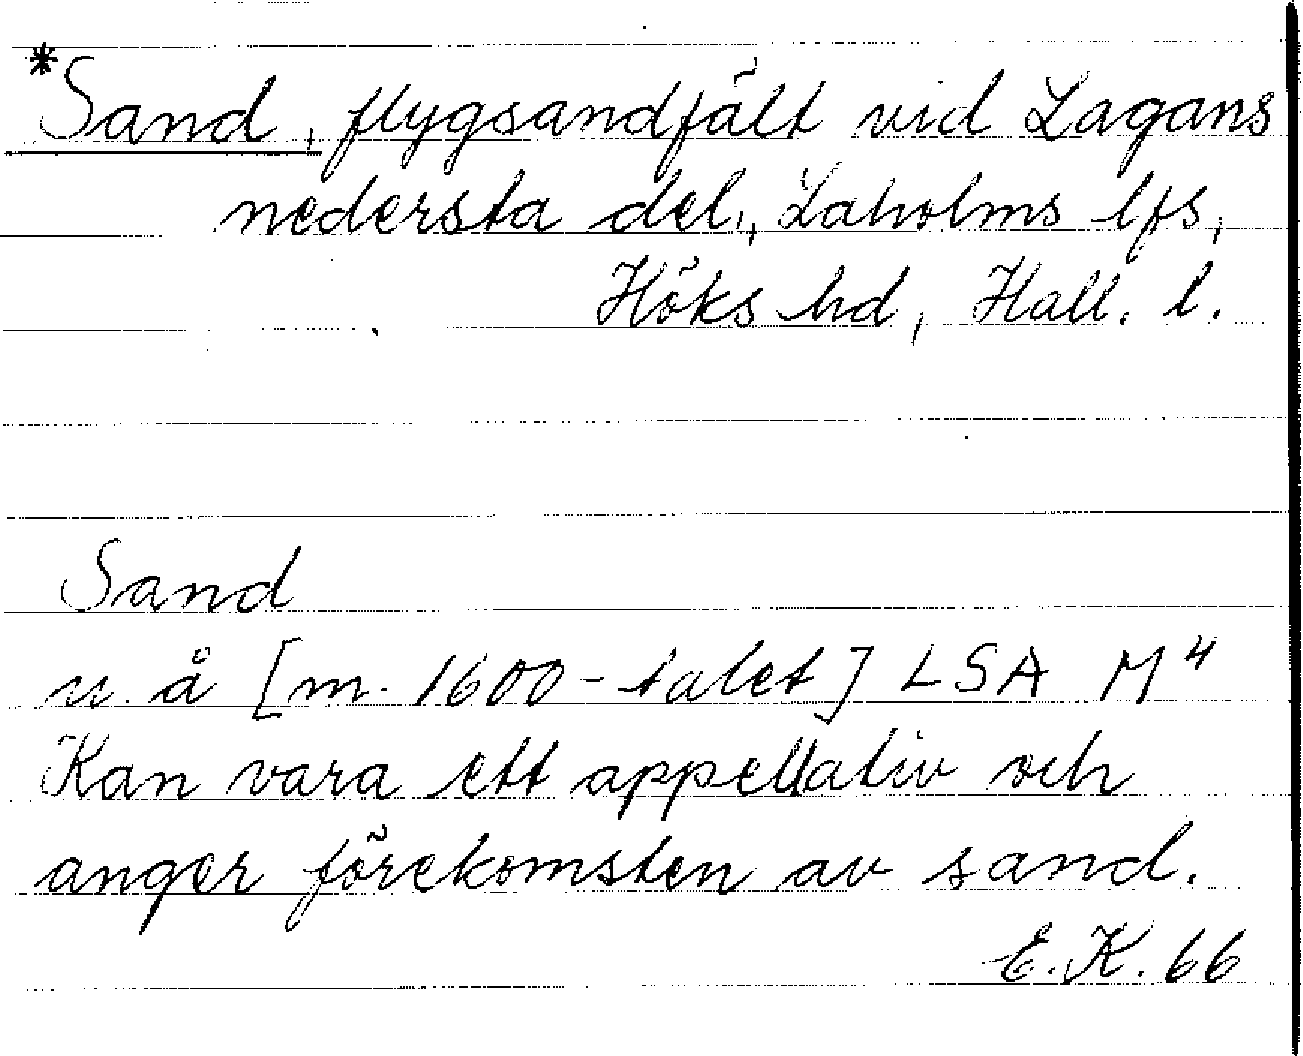 *Sand, flygsandfält vid Lagans
nedersta del, Laholms lfs,
Höks hd, Hall. l.
Sand
u. å [m. 1600-talet] LSA M 4
Kan vara ett appellativ och
anger förekomsten av sand.
E.K. 66